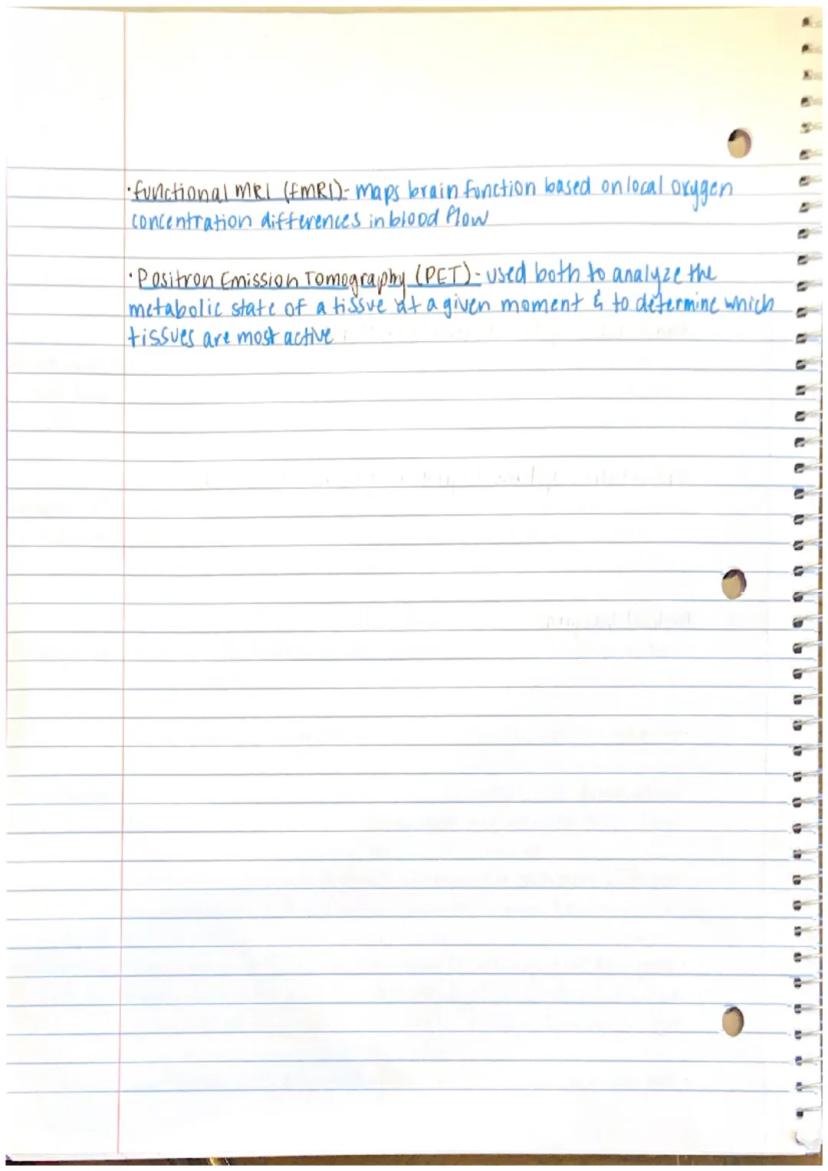 ·functional MRI (fMRI)- maps brain function based on local oxygen
concentration differences in blood flow
·Positron Emission Tomography (PET)- used both to analyze the
metabolic state of a tissue at a given moment & to determine which
tissues are most active